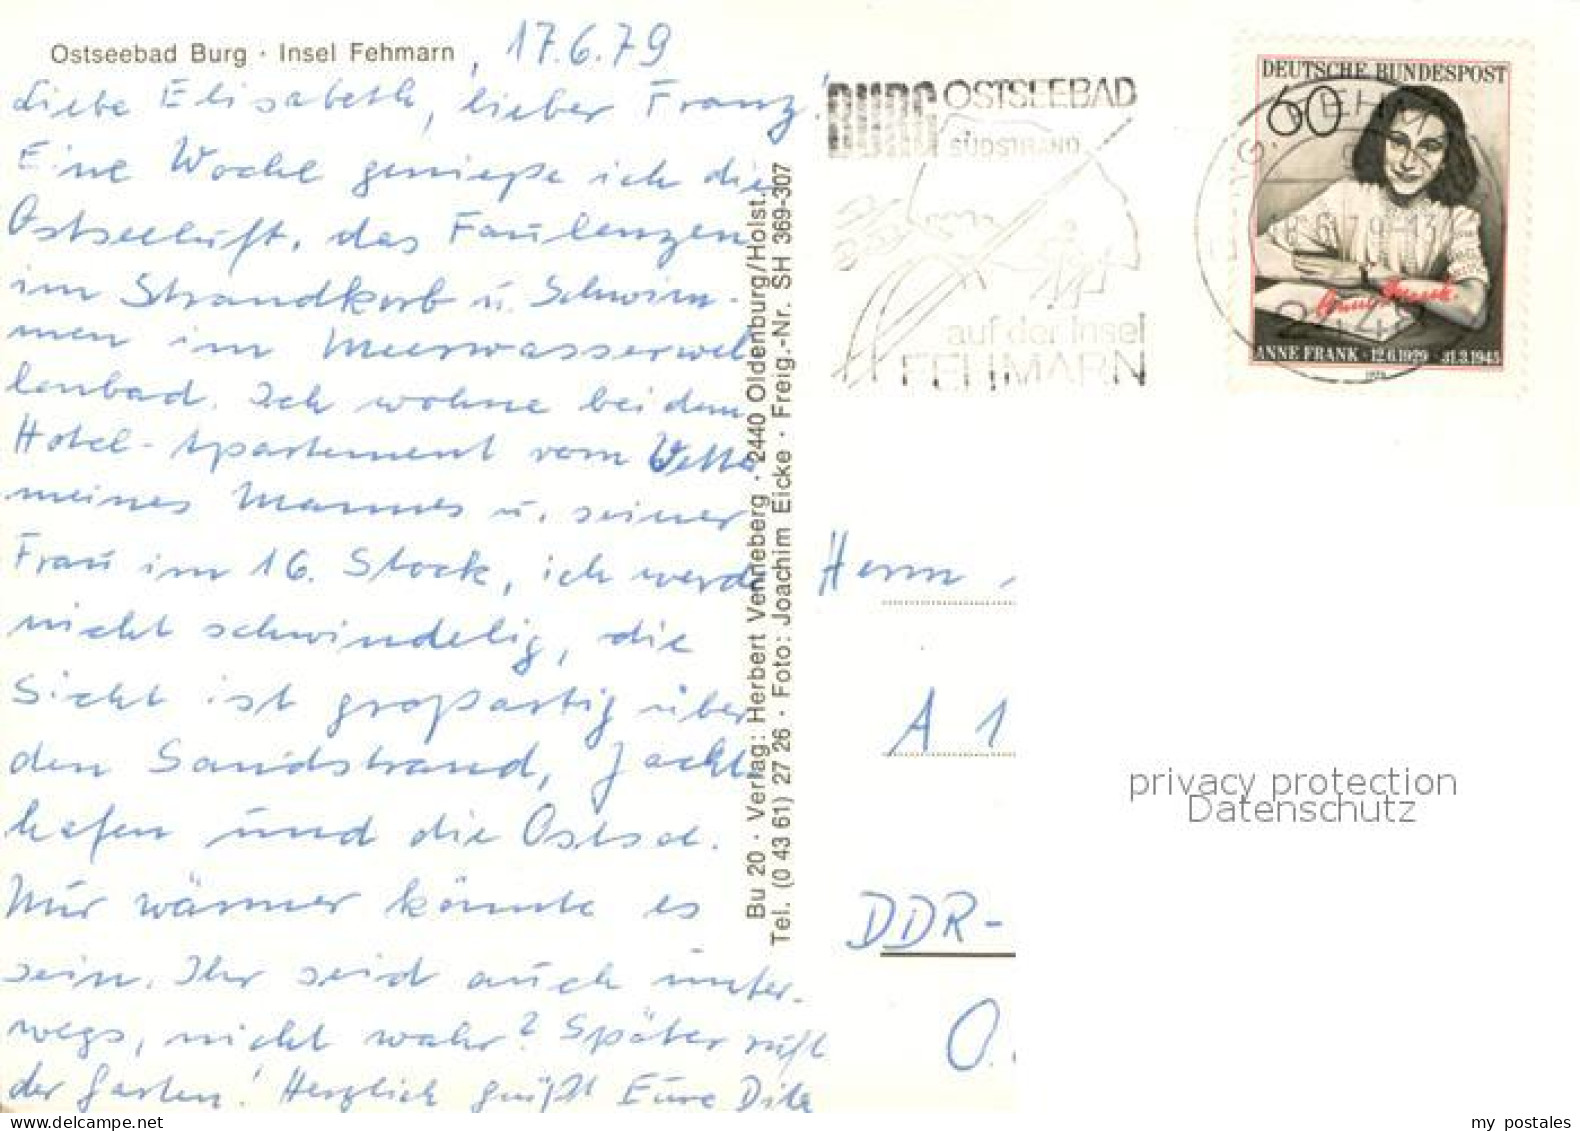 Ostseebad Burg · Insel Fehmarn , 17.6.79
Liebe Elisabeth, lieber Franz!
Eine Woche genieße ich die
Ostseeluft, das Faulenzen
im Strandkorb u. Schwim-
men im Meerwasserwel
lenbad. Ich wohne bei dem
Hotel-Apartement vom Vetter
meines Mannes u. seiner
Frau im 16. Stock, ich werde
nicht schwindelig, die
Sicht ist großartig über
den Sandstrand, Jacht
hafen und die Ostsee.
Nur wärmer könnte es
sein. Ihr seid auch unter-
wegs, nicht wahr? Später ruft
der Garten! Herzlich grüßt Eure Dita
Bu 20 · Verlag: Herbert Venneberg · 2440 Oldenburg/Holst.
Tel. (0 43 61) 27 26 · Foto: Joachim Eicke · Freig.-Nr. SH 369-307
BURG OSTSEEBAD
SÜDSTRAND
auf der Insel
FEHMARN
DEUTSCHE BUNDESPOST
60
ANNE FRANK · 12.6.1929 · 31.3.1945
Herrn
A 1
DDR-
O.
privacy protection
Datenschutz
www.delcampe.net
my postales